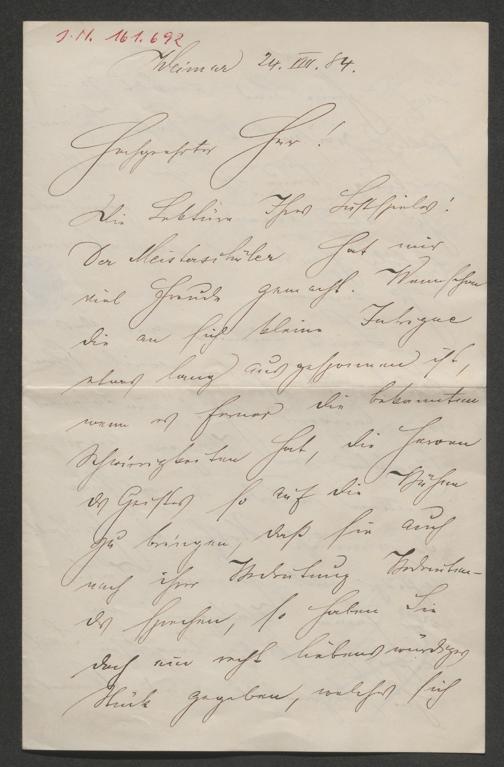 J.N. 161.692
Weimar 24. VIII. 84.
Hochgeehrter Herr!
Die Lektüre Ihres Lustspieles:
Der Meisterschüler hat mir
viel Freude gemacht. Wennschon
die an sich kleine Intrigue
etwas lang ausgesponnen ist,
wenn es ferner die bekannten
Schwierigkeiten hat, die Heroen
des Geistes so auf die Bühne
zu bringen, daß sie auch
nach ihrer Bedeutung Bedeuten-
des sprechen, so haben Sie
doch ein recht liebenswürdiges
Stück gegeben, welches sich